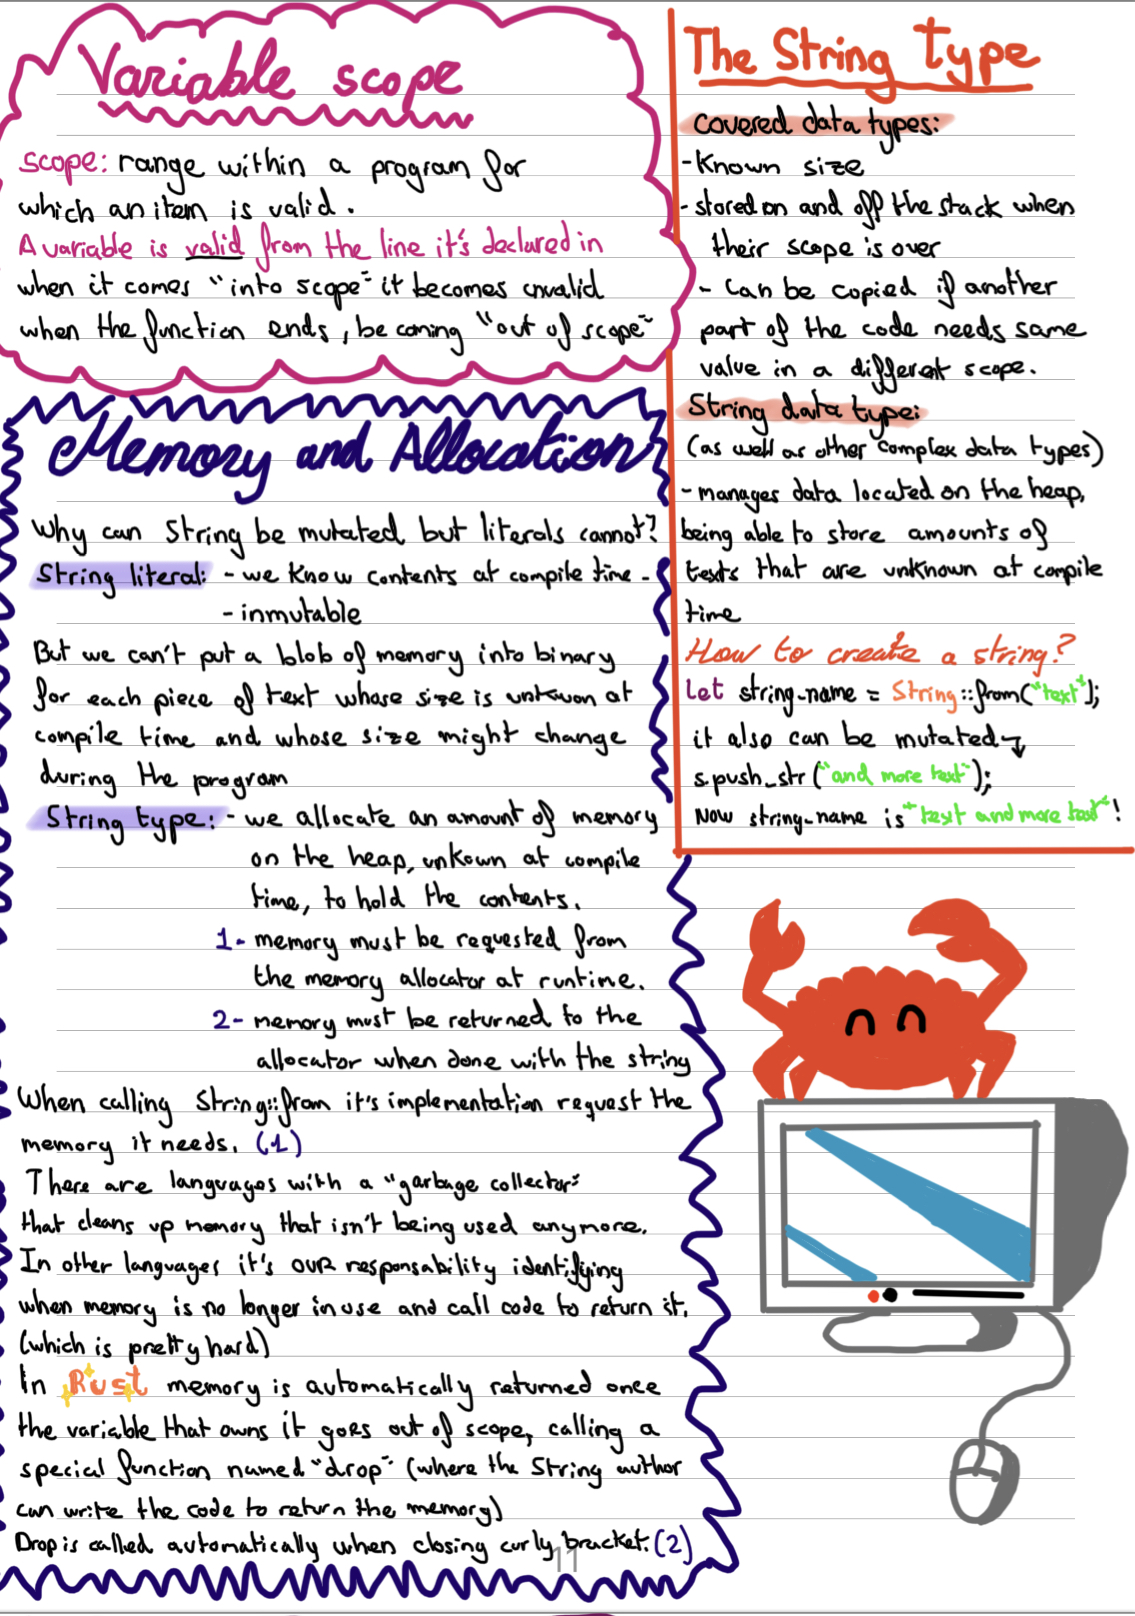 Variable scope
scope: range within a program for
which an item is valid.
A variable is valid from the line it's declared in
when it comes "into scope" it becomes invalid
when the function ends, becoming "out of scope"
Memory and Allocation
Why can String be mutated but literals cannot?
String literal: - we know contents at compile time -
- inmutable
But we can't put a blob of memory into binary
for each piece of text whose size is unkwon at
compile time and whose size might change
during the program
String type: - we allocate an amount of memory
on the heap, unkown at compile
time, to hold the contents.
1- memory must be requested from
the memory allocator at runtime.
2- memory must be returned to the
allocator when done with the string
When calling String::from it's implementation request the
memory it needs. (1)
There are languages with a "garbage collector"
that cleans up memory that isn't being used anymore.
In other languages it's OUR responsability identifying
when memory is no longer in use and call code to return it.
(which is pretty hard)
In Rust memory is automatically returned once
the variable that owns it goes out of scope, calling a
special function named "drop" (where the String author
can write the code to return the memory)
Drop is called automatically when closing curly bracket. (2)
11
The String type
covered data types:
- Known size
- stored on and off the stack when
their scope is over
- Can be copied if another
part of the code needs same
value in a different scope.
String data type:
(as well as other complex data types)
- manages data located on the heap,
being able to store amounts of
texts that are unknown at compile
time
How to create a string?
let string_name = String::from("text");
it also can be mutated
s.push_str("and more text");
Now string_name is "text and more text"!